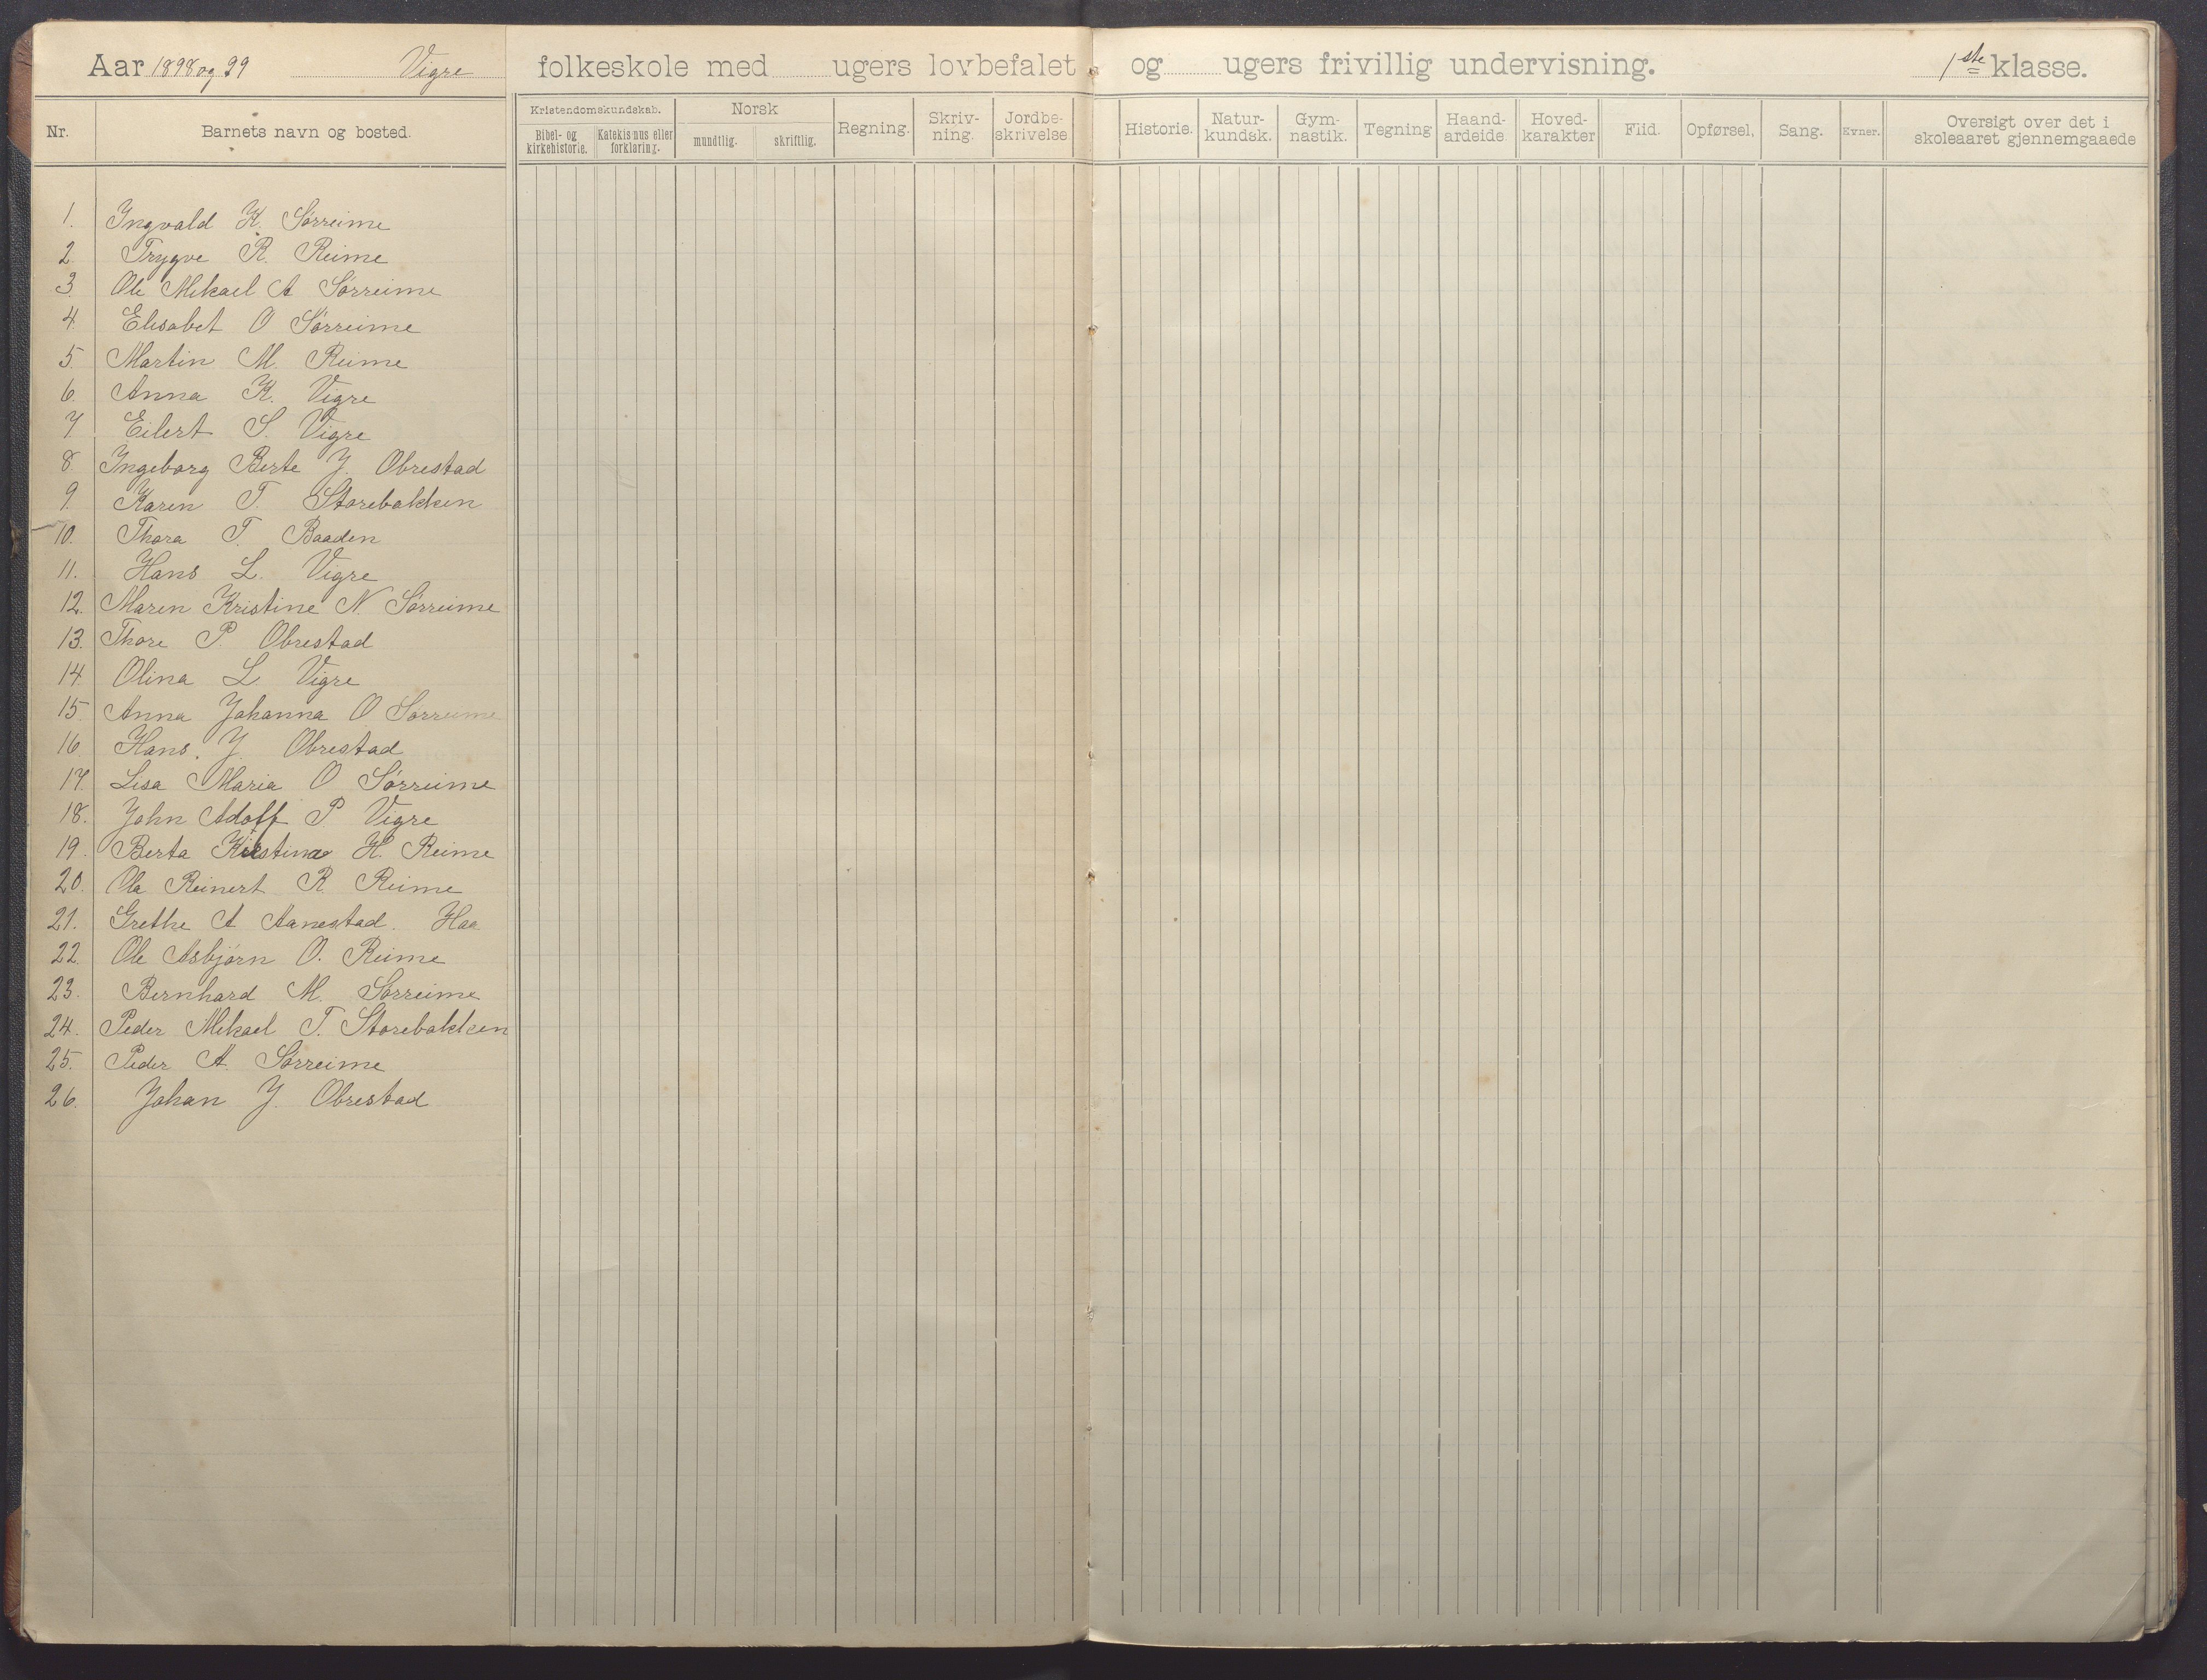 Aar 1898 og 99 Vigre folkeskole med ugers lovbefalet og ugers frivillig undervisning. 1ste klasse.
Nr. Barnets navn og bosted. Kristendomskundskab. Bibel- og kirkehistorie. Katekismus eller forklaring. Norsk mundtlig. skriftlig. Regning. Skriv-ning. Jordbe-skrivelse Historie. Natur-kundsk. Gym-nastik. Tegning Haand-arbeide. Hoved-karakter Flid. Opførsel. Sang. Evner. Oversigt over det i skoleaaret gjennemgaaede
1. Ingvald K. Sørreime
2. Trygve R. Reime
3. Ole Mikael A Sørreime
4. Elisabet O Sørreime
5. Martin M. Reime
6. Anna K. Vigre
7. Eilert S. Vigre
8. Ingeborg Berte J. Obrestad
9. Karen T. Storebakken
10. Thora T. Baaden
11. Hans L. Vigre
12. Maren Kristine N. Sørreime
13. Thore P. Obrestad
14. Olina L. Vigre
15. Anna Johanna O Sørreime
16. Hans J. Obrestad
17. Lisa Maria O Sørreime
18. John Adolf P. Vigre
19. Berta Kristina H. Reime
20. Ola Reinert R. Reime
21. Grethe A Aanestad. Haa
22. Ole Asbjørn O. Reime
23. Bernhard M. Sørreime
24. Peder Mikael T. Storebakken
25. Peder A. Sørreime
26. Johan J. Obrestad